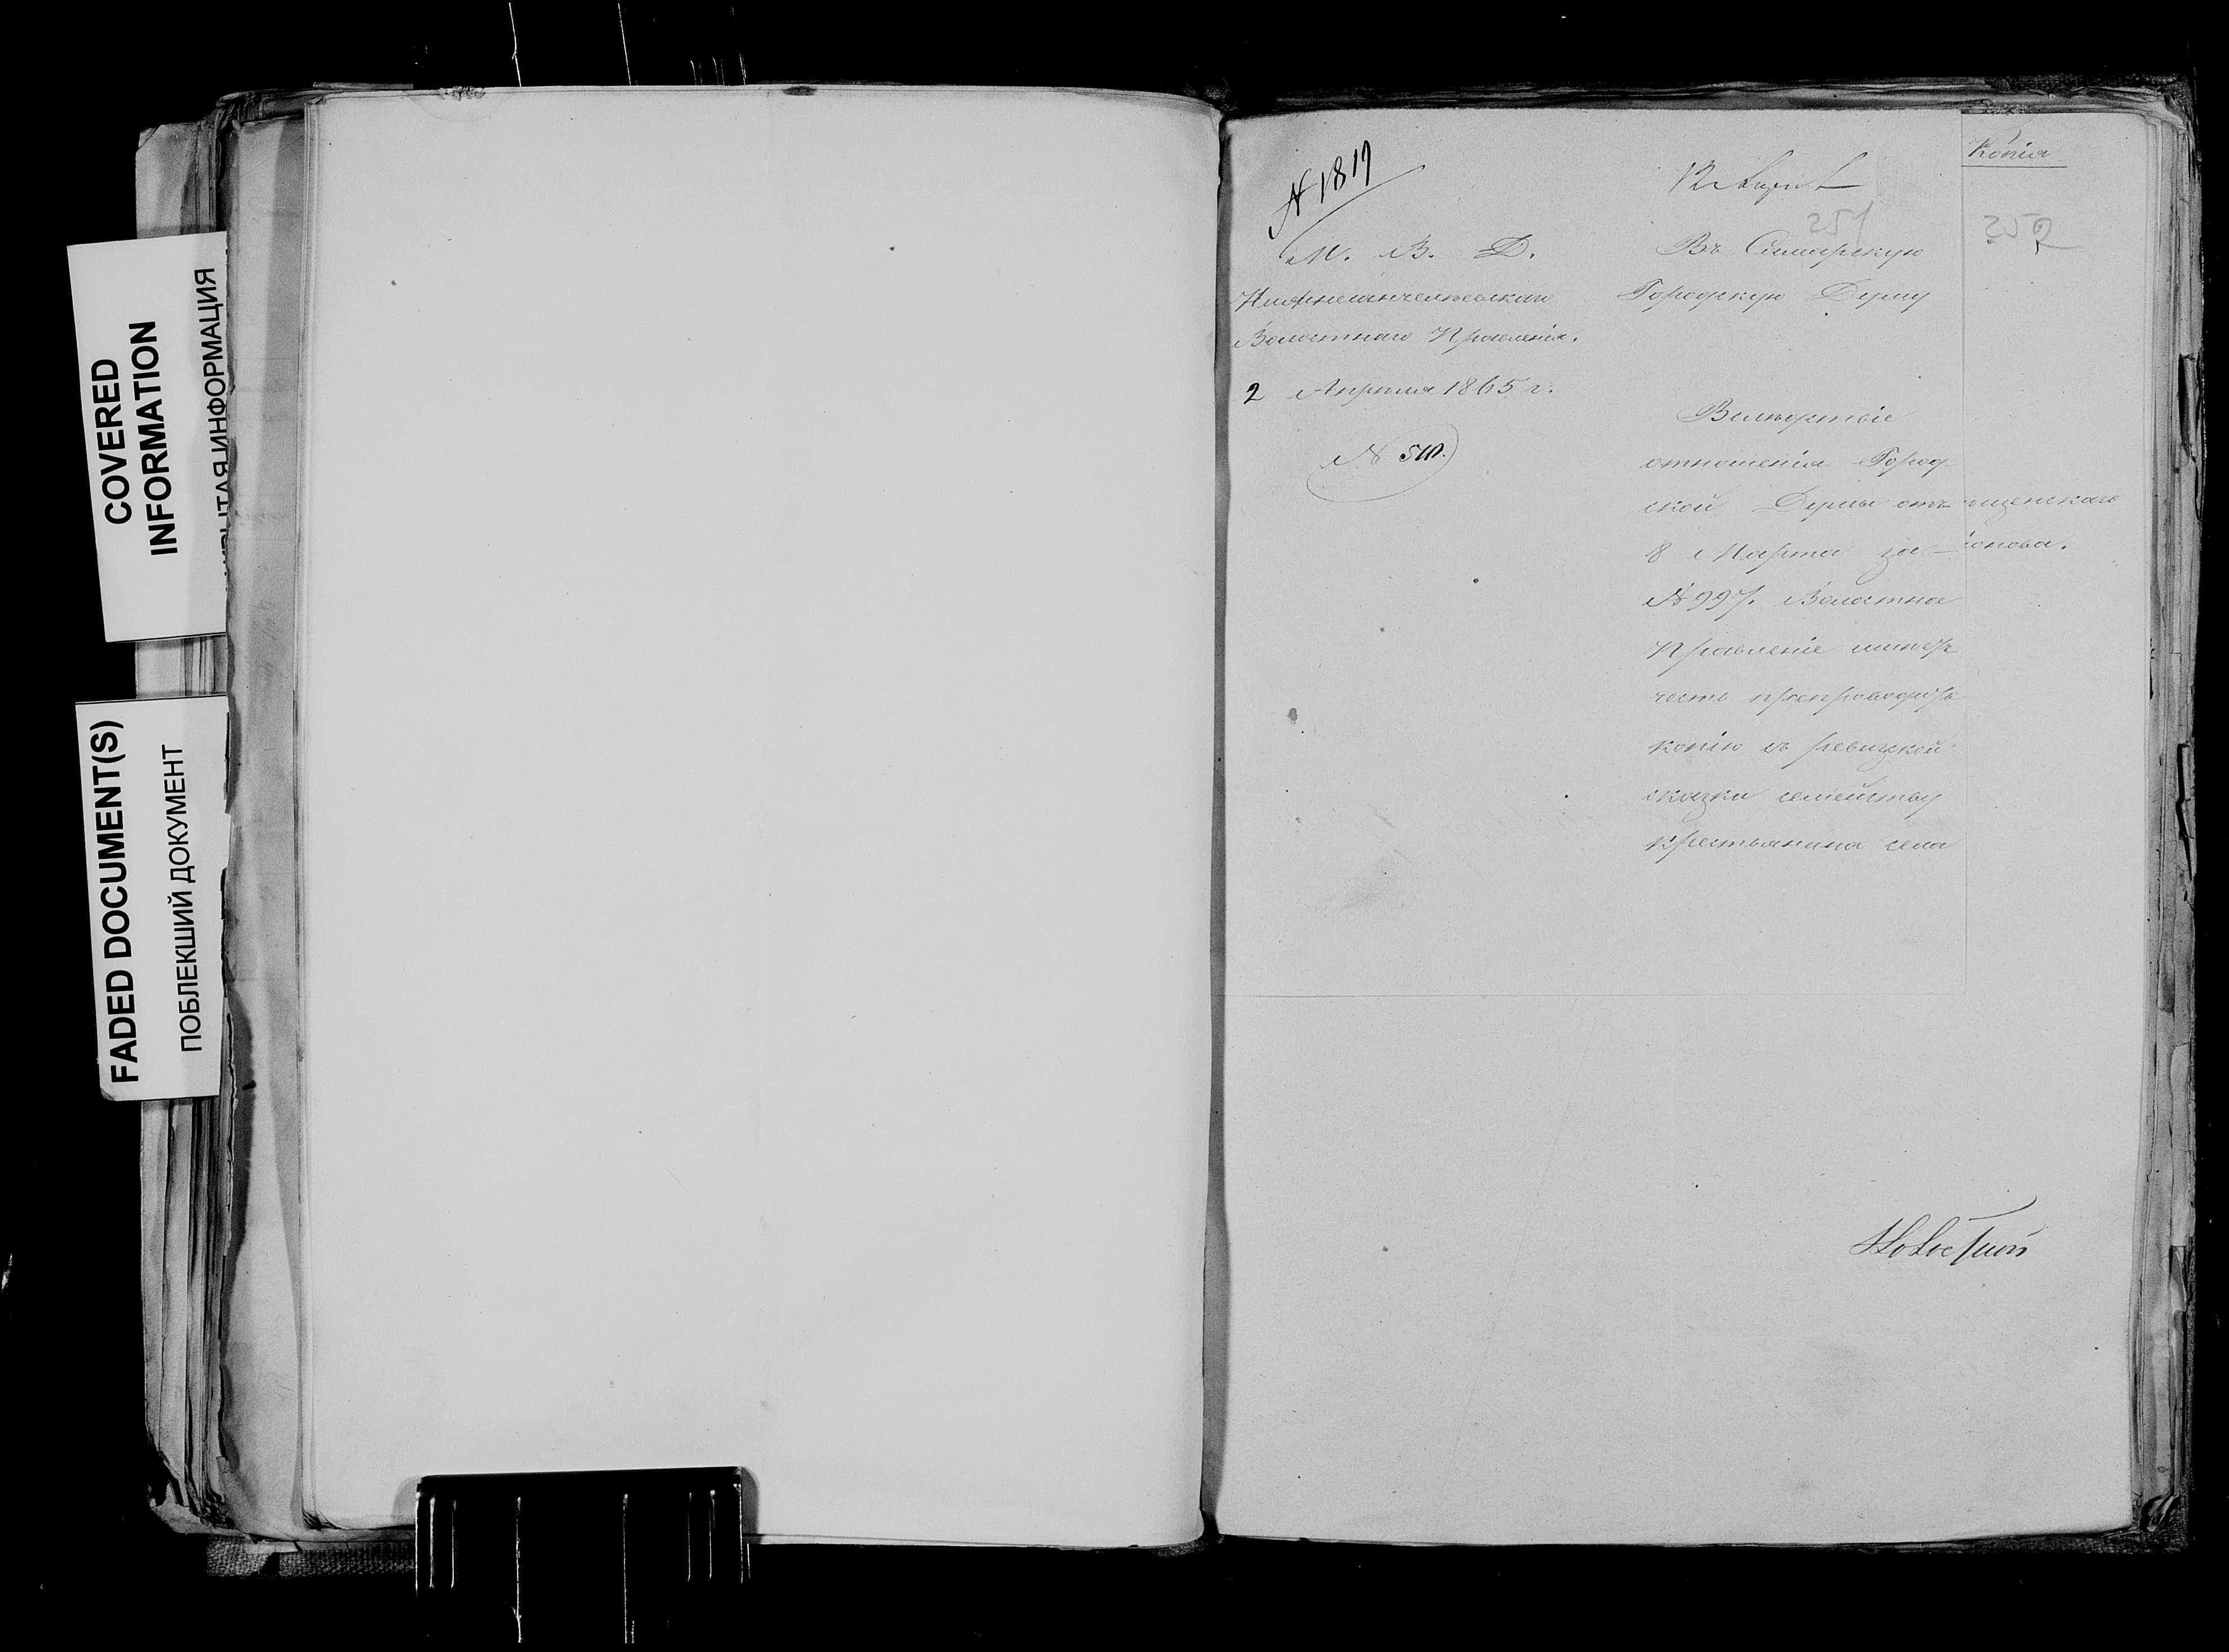 COVERED
INFORMATION
ИНФОРМАЦИЯ
FADED DOCUMENT(S)
ПОБЛЕКШИЙ ДОКУМЕНТ
№ 1819
М. В. Д.
Волостнаго Правленія.
2 Апрѣля 1865 г.
№ 510.
12 Апрѣл
251
Въ Самарскую
Городскую Думу
Вслѣдствіе
отношенія Город-
ской Думы отъ
8 Марта за
№ 997. Волостное
Правленіе имѣетъ
честь препроводить
копію съ ревизской
сказки семейству
крестьянина села
Копія
252